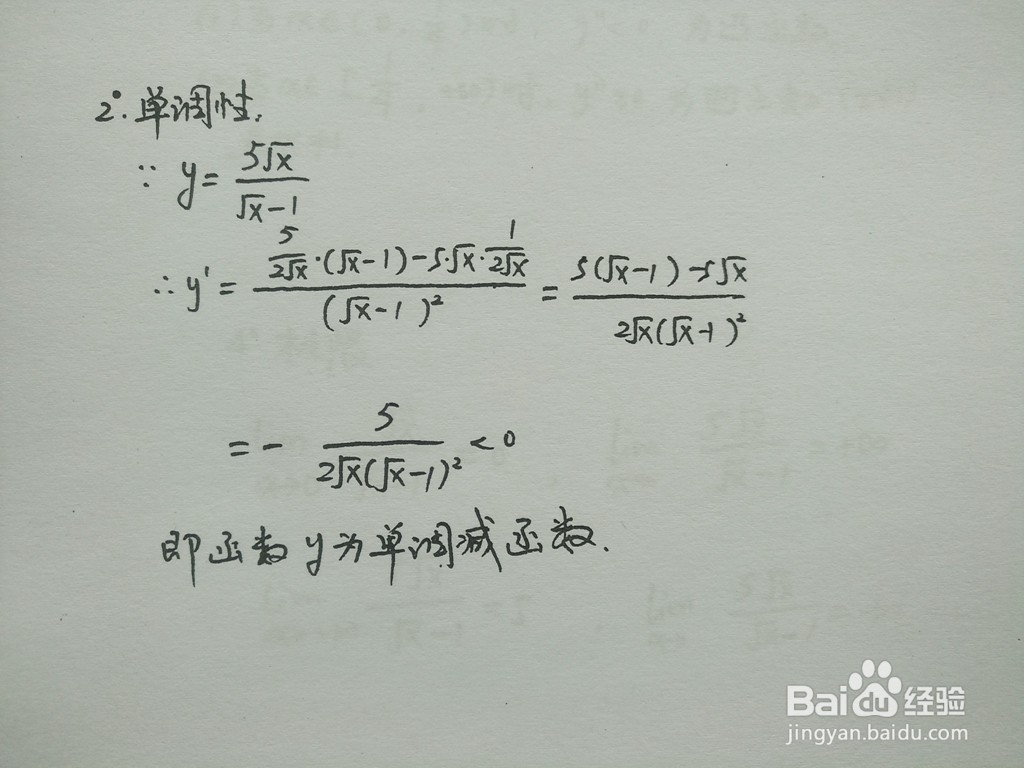 2°.单调性.
∵ y = 5√x / (√x-1)
∴ y' = [5/(2√x)·(√x-1)-5·√x·1/(2√x)] / (√x-1)² = [5(√x-1)-5√x] / [2√x(√x-1)²]
= - 5 / [2√x(√x-1)²] < 0
即函数y为单调减函数.
Baidu经验
jingyan.baidu.com